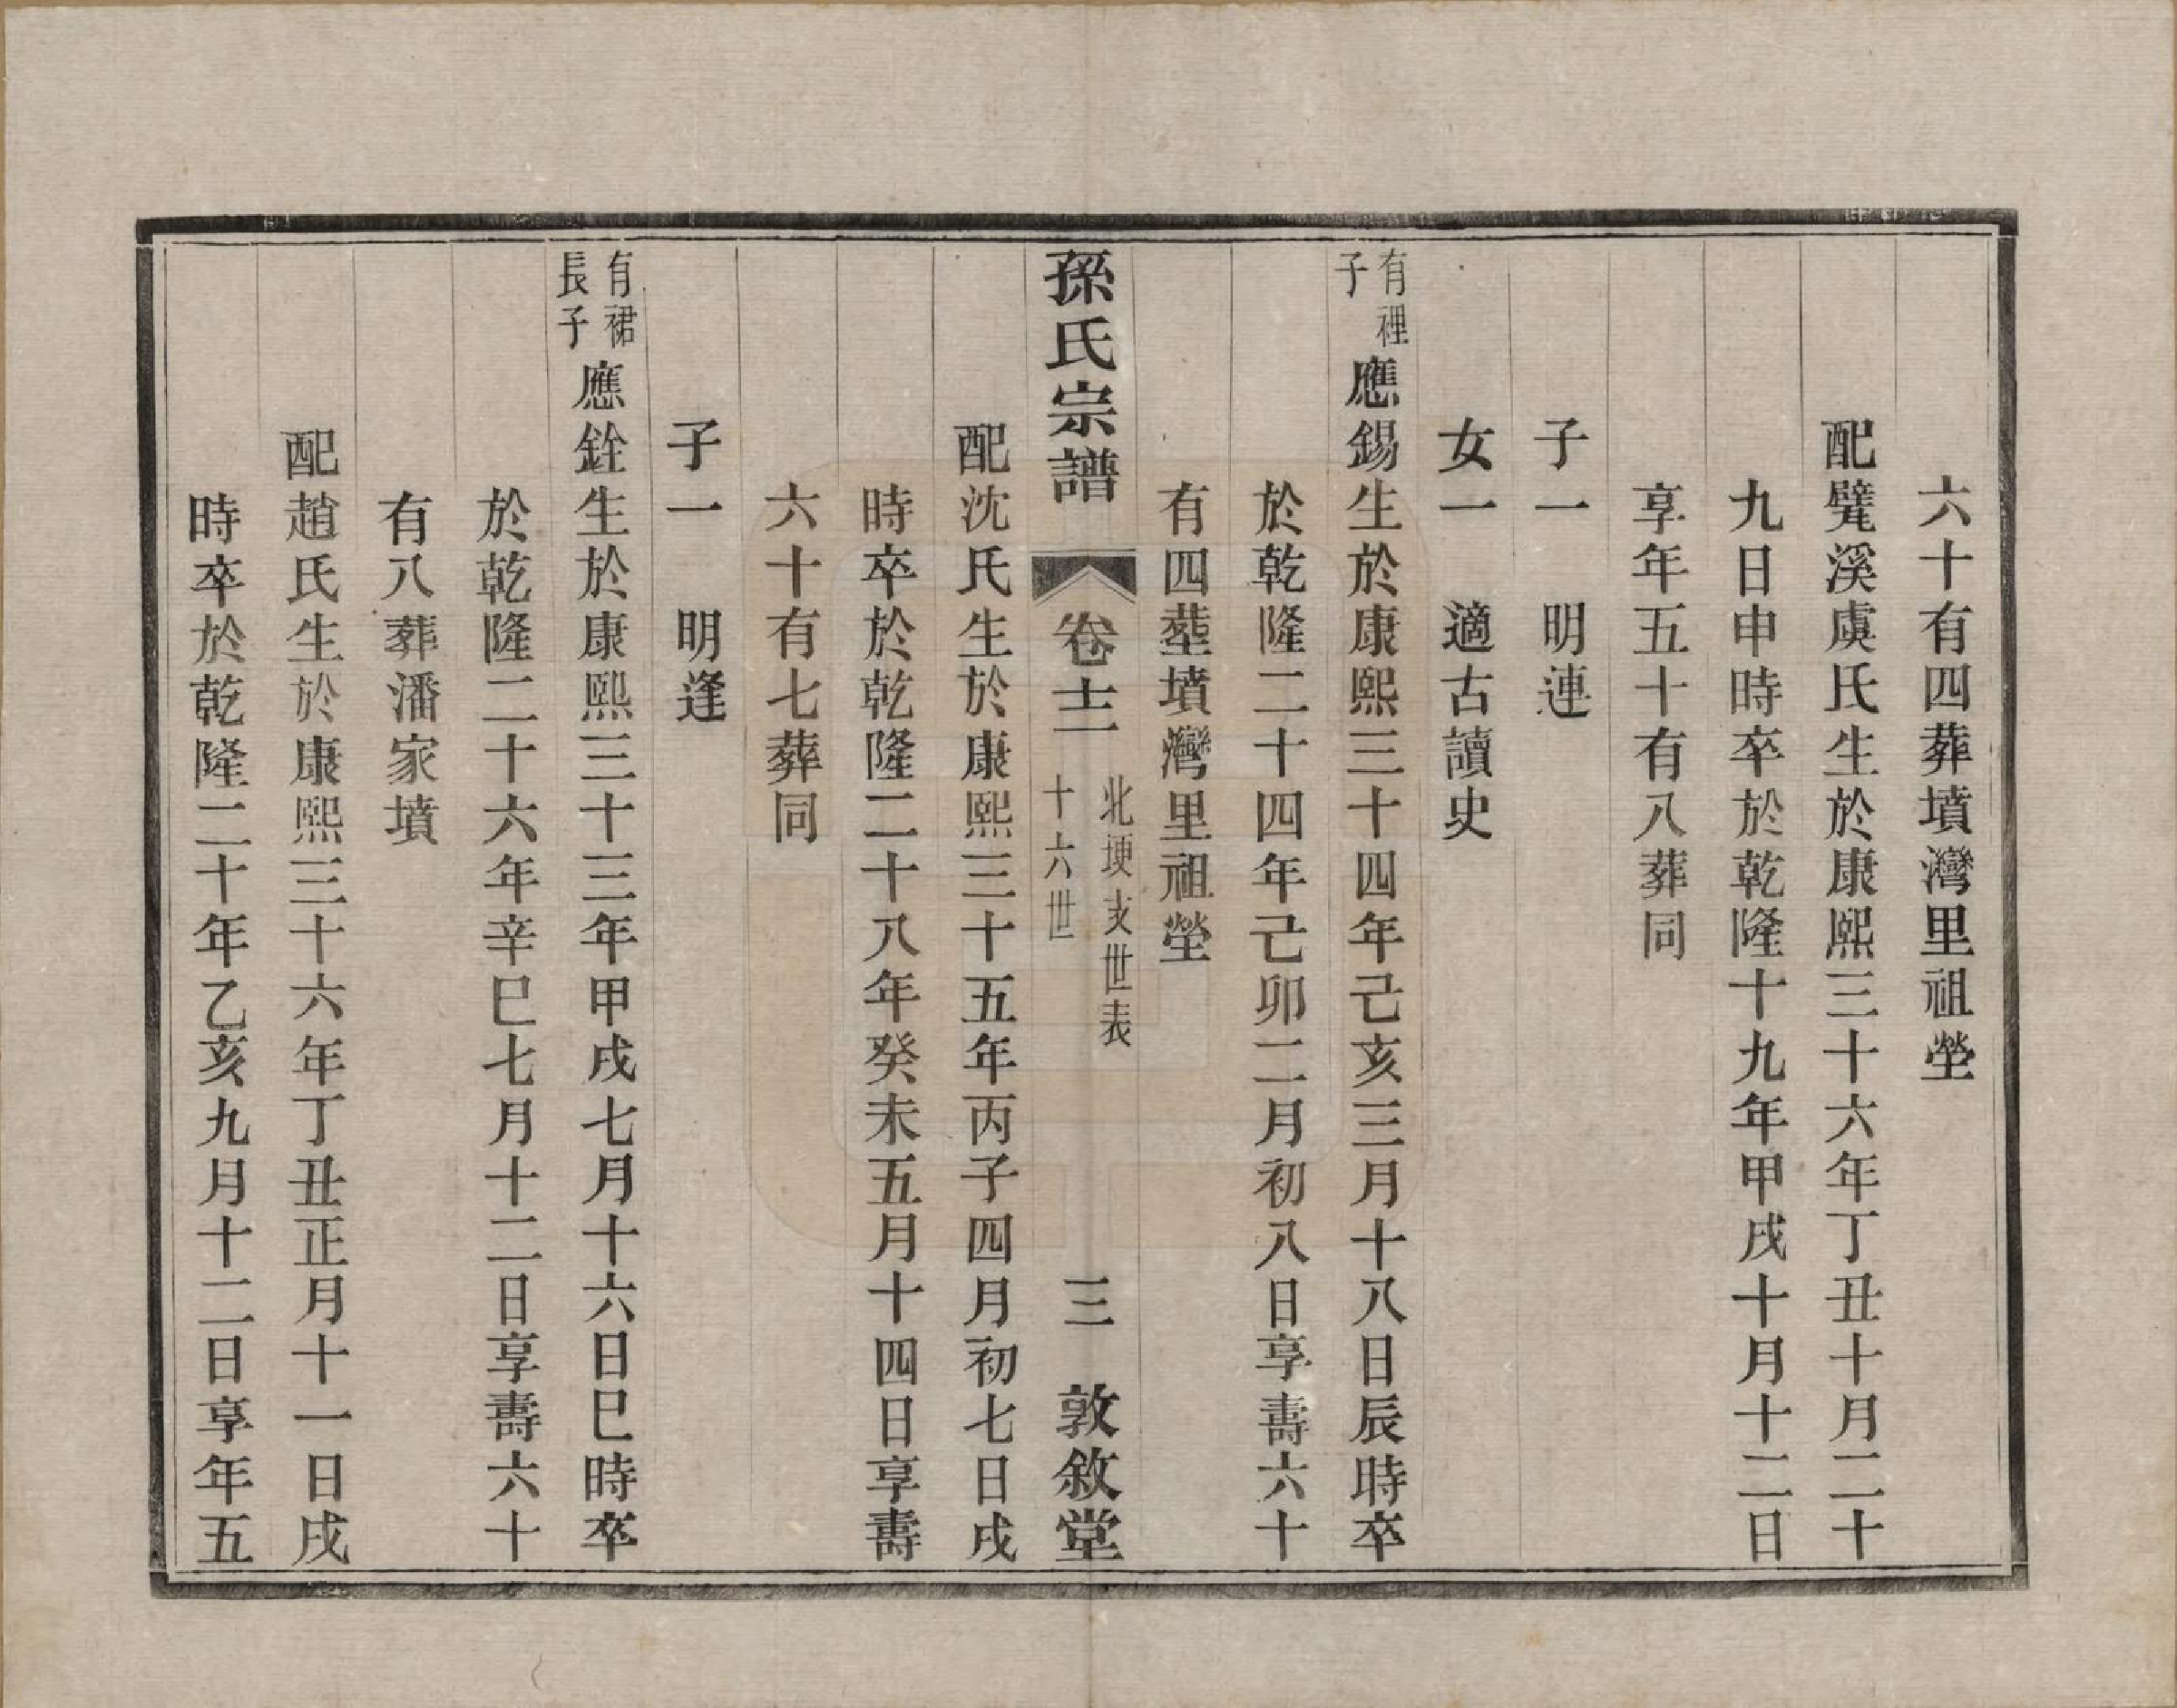 六十有四葬墳灣里祖塋
配甓溪虞氏生於康熙三十六年丁丑十月二十
九日申時卒於乾隆十九年甲戌十月十二日
享年五十有八葬同
子一　明連
女一　適古讀史
有裡子應錫生於康熙三十四年己亥三月十八日辰時卒
於乾隆二十四年己卯二月初八日享壽六十
有四塟墳灣里祖塋
孫氏宗譜　卷十二　北埂支世表　十六世　三　敦敘堂
配沈氏生於康熙三十五年丙子四月初七日戌
時卒於乾隆二十八年癸未五月十四日享壽
六十有七葬同
子一　明逢
有裙長子應銓生於康熙三十三年甲戌七月十六日巳時卒
於乾隆二十六年辛巳七月十二日享壽六十
有八葬潘家墳
配趙氏生於康熙三十六年丁丑正月十一日戌
時卒於乾隆二十年乙亥九月十二日享年五